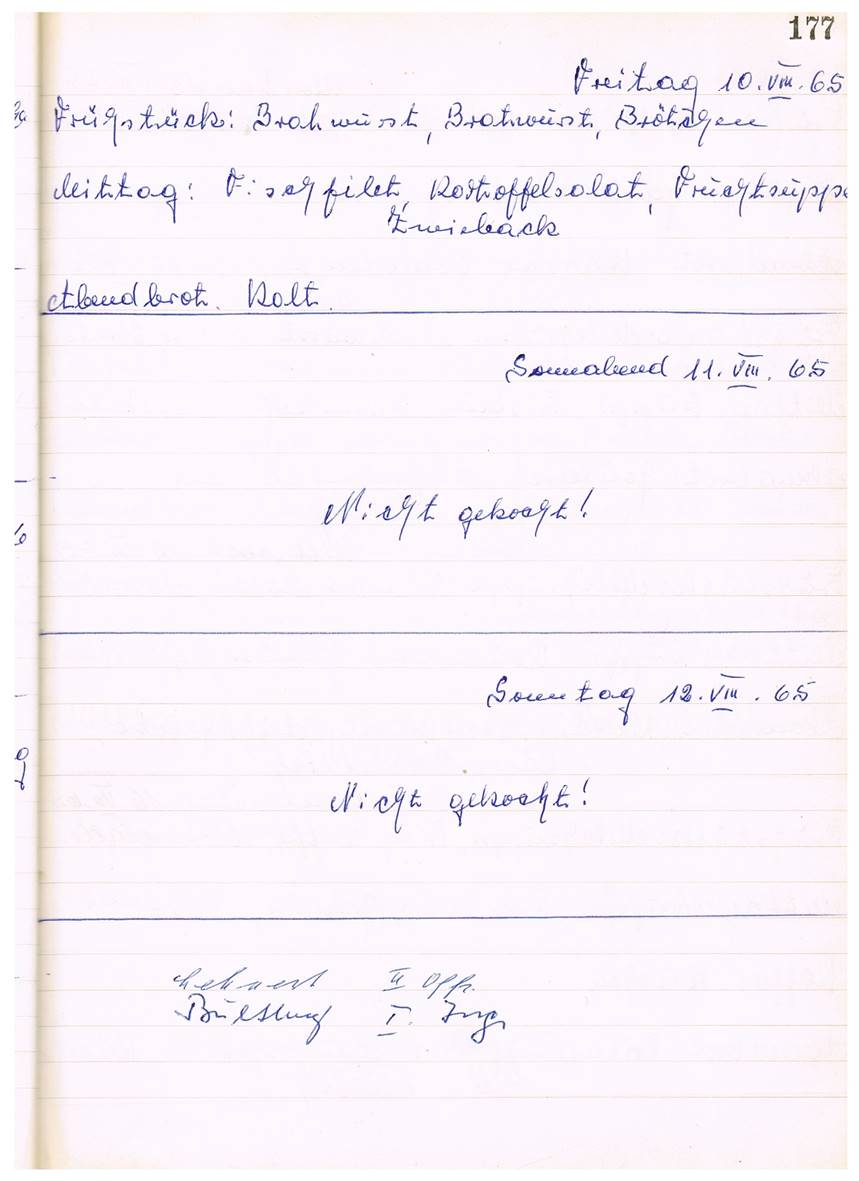 177
Freitag 10. VIII. 65
Frühstück: Brahwurst, Bratwurst, Brötchen
Mittag: Fischfilet, Kartoffelsalat, Fruchtsuppe
Zwieback
Abendbrot. Kalt.
Sonnabend 11. VIII. 65
Nicht gekocht!
Sonntag 12. VIII. 65
Nicht gekocht!
Lehnert II Offz.
I. Ing.